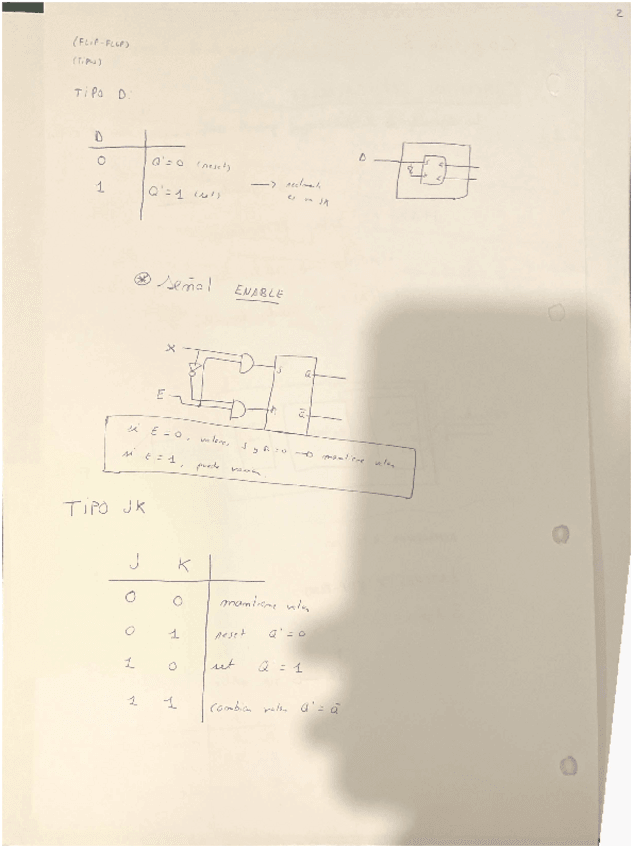 2
(FLIP-FLOP)
(TIPOS)
TIPO D:
D
0 Q'=0 (reset)
1 Q'=1 (set) → realmente es un JK
D
* Señal ENABLE
X
E
S Q
R Q̄
si E=0, valores S y R=0 → mantiene valor
si E=1, puede variar
TIPO JK
J K
0 0 mantiene valor
0 1 reset Q'=0
1 0 set Q=1
1 1 cambia valor Q'=Q̄